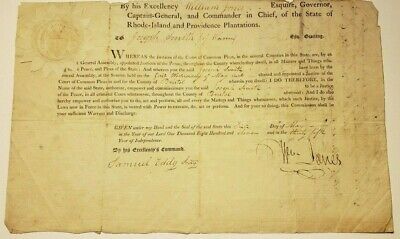 By his Excellency William Jones Esquire, Governor,
Captain-General, and Commander in Chief, of the State of
Rhode-Island, and Providence Plantations.
To Joseph Smith of Greeting
WHEREAS the Justices of the Court of Common Pleas, in the several Counties in this State, are, by an
Act of the General Assembly, appointed Justices of the Peace, throughout the County wherein they dwell, in all Matters and Things relating
to the Peace, and Pleas of the State; and whereas you the said Joseph Smith have been by the
General Assembly, at the Session held on the first Wednesday of May inst. elected and appointed a Justice of the
Court of Common Pleas for the County of Bristol wherein you dwell, I DO THEREFORE, in the
Name of the State, authorize and empower you the said Joseph Smith to be a Justice
of the Peace, in all criminal Cases whatsoever, throughout the County of Bristol aforesaid: And I do also
hereby empower and authorize you to act, perform, and do all and every the Matters and Things whatsoever, which such Justice, by the
Laws now in Force in this State, is vested with Power to execute and perform. And for your so doing, this Commission shall be your
sufficient Warrant and Discharge.
GIVEN under my Hand and the Seal of the said State this Day of May
in the Year of our Lord One Thousand Eight Hundred and Eleven and in the Thirty fifth
Year of Independence.
By his Excellency's Command.
Samuel Eddy Secy
Wm Jones